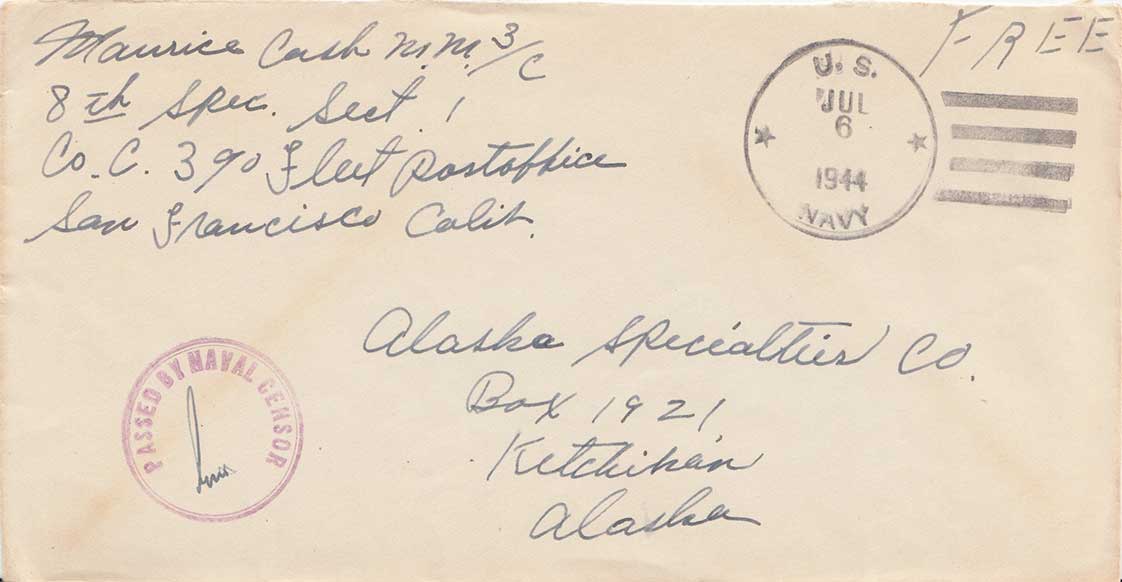 Maurice Cash M.M. 3/c
8th Spec. Sect. 1
Co. C. 390 Fleet Postoffice
San Francisco Calif.
FREE
U. S.
JUL
6
1944
NAVY
PASSED BY NAVAL CENSOR
Alaska Specialties Co.
Box 1921
Ketchikan
Alaska